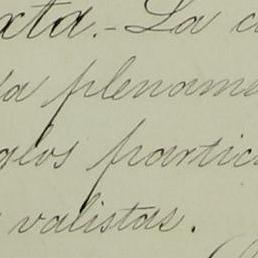 xta.- La c
da plename
glos partic
valistas.